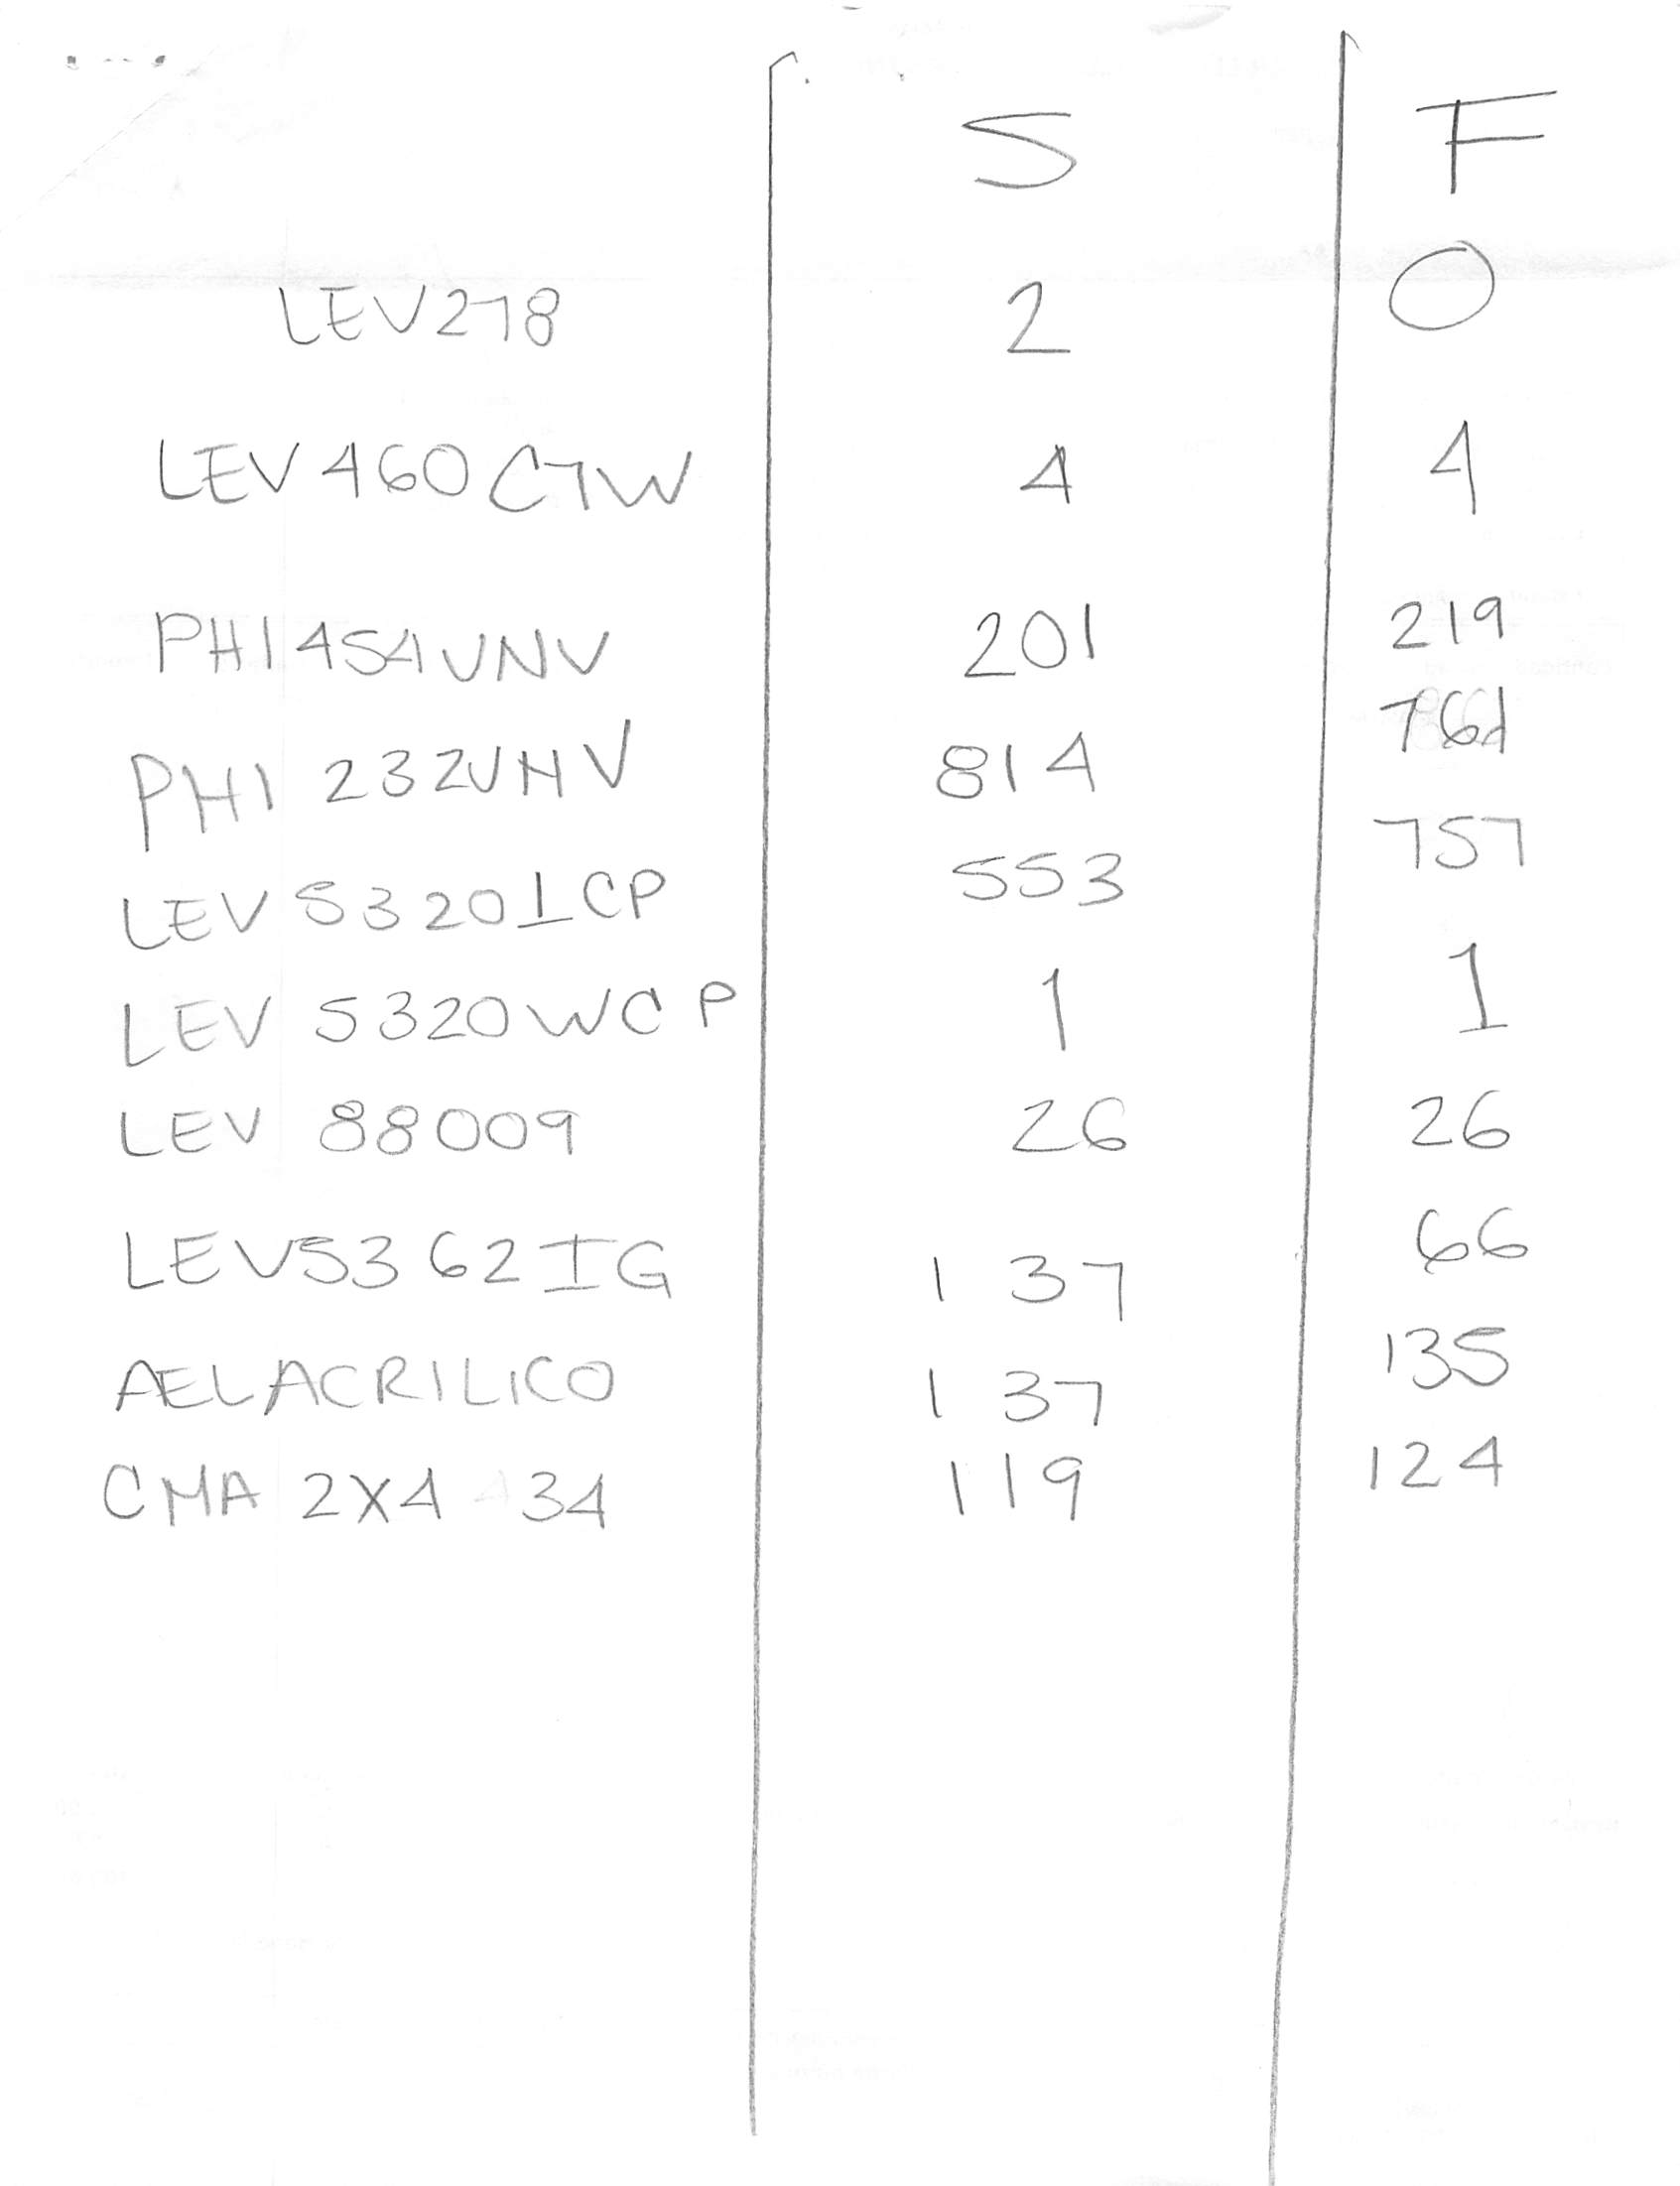 S F
LEV278 2 0
LEV460C7W 4 4
PHI454UNV 201 219
PHI 232UNV 814 761
LEV 5320ICP 553 757
LEV 5320WCP 1 1
LEV 88009 26 26
LEV5362IG 137 66
AELACRILICO 137 135
CMA 2X4 34 119 124